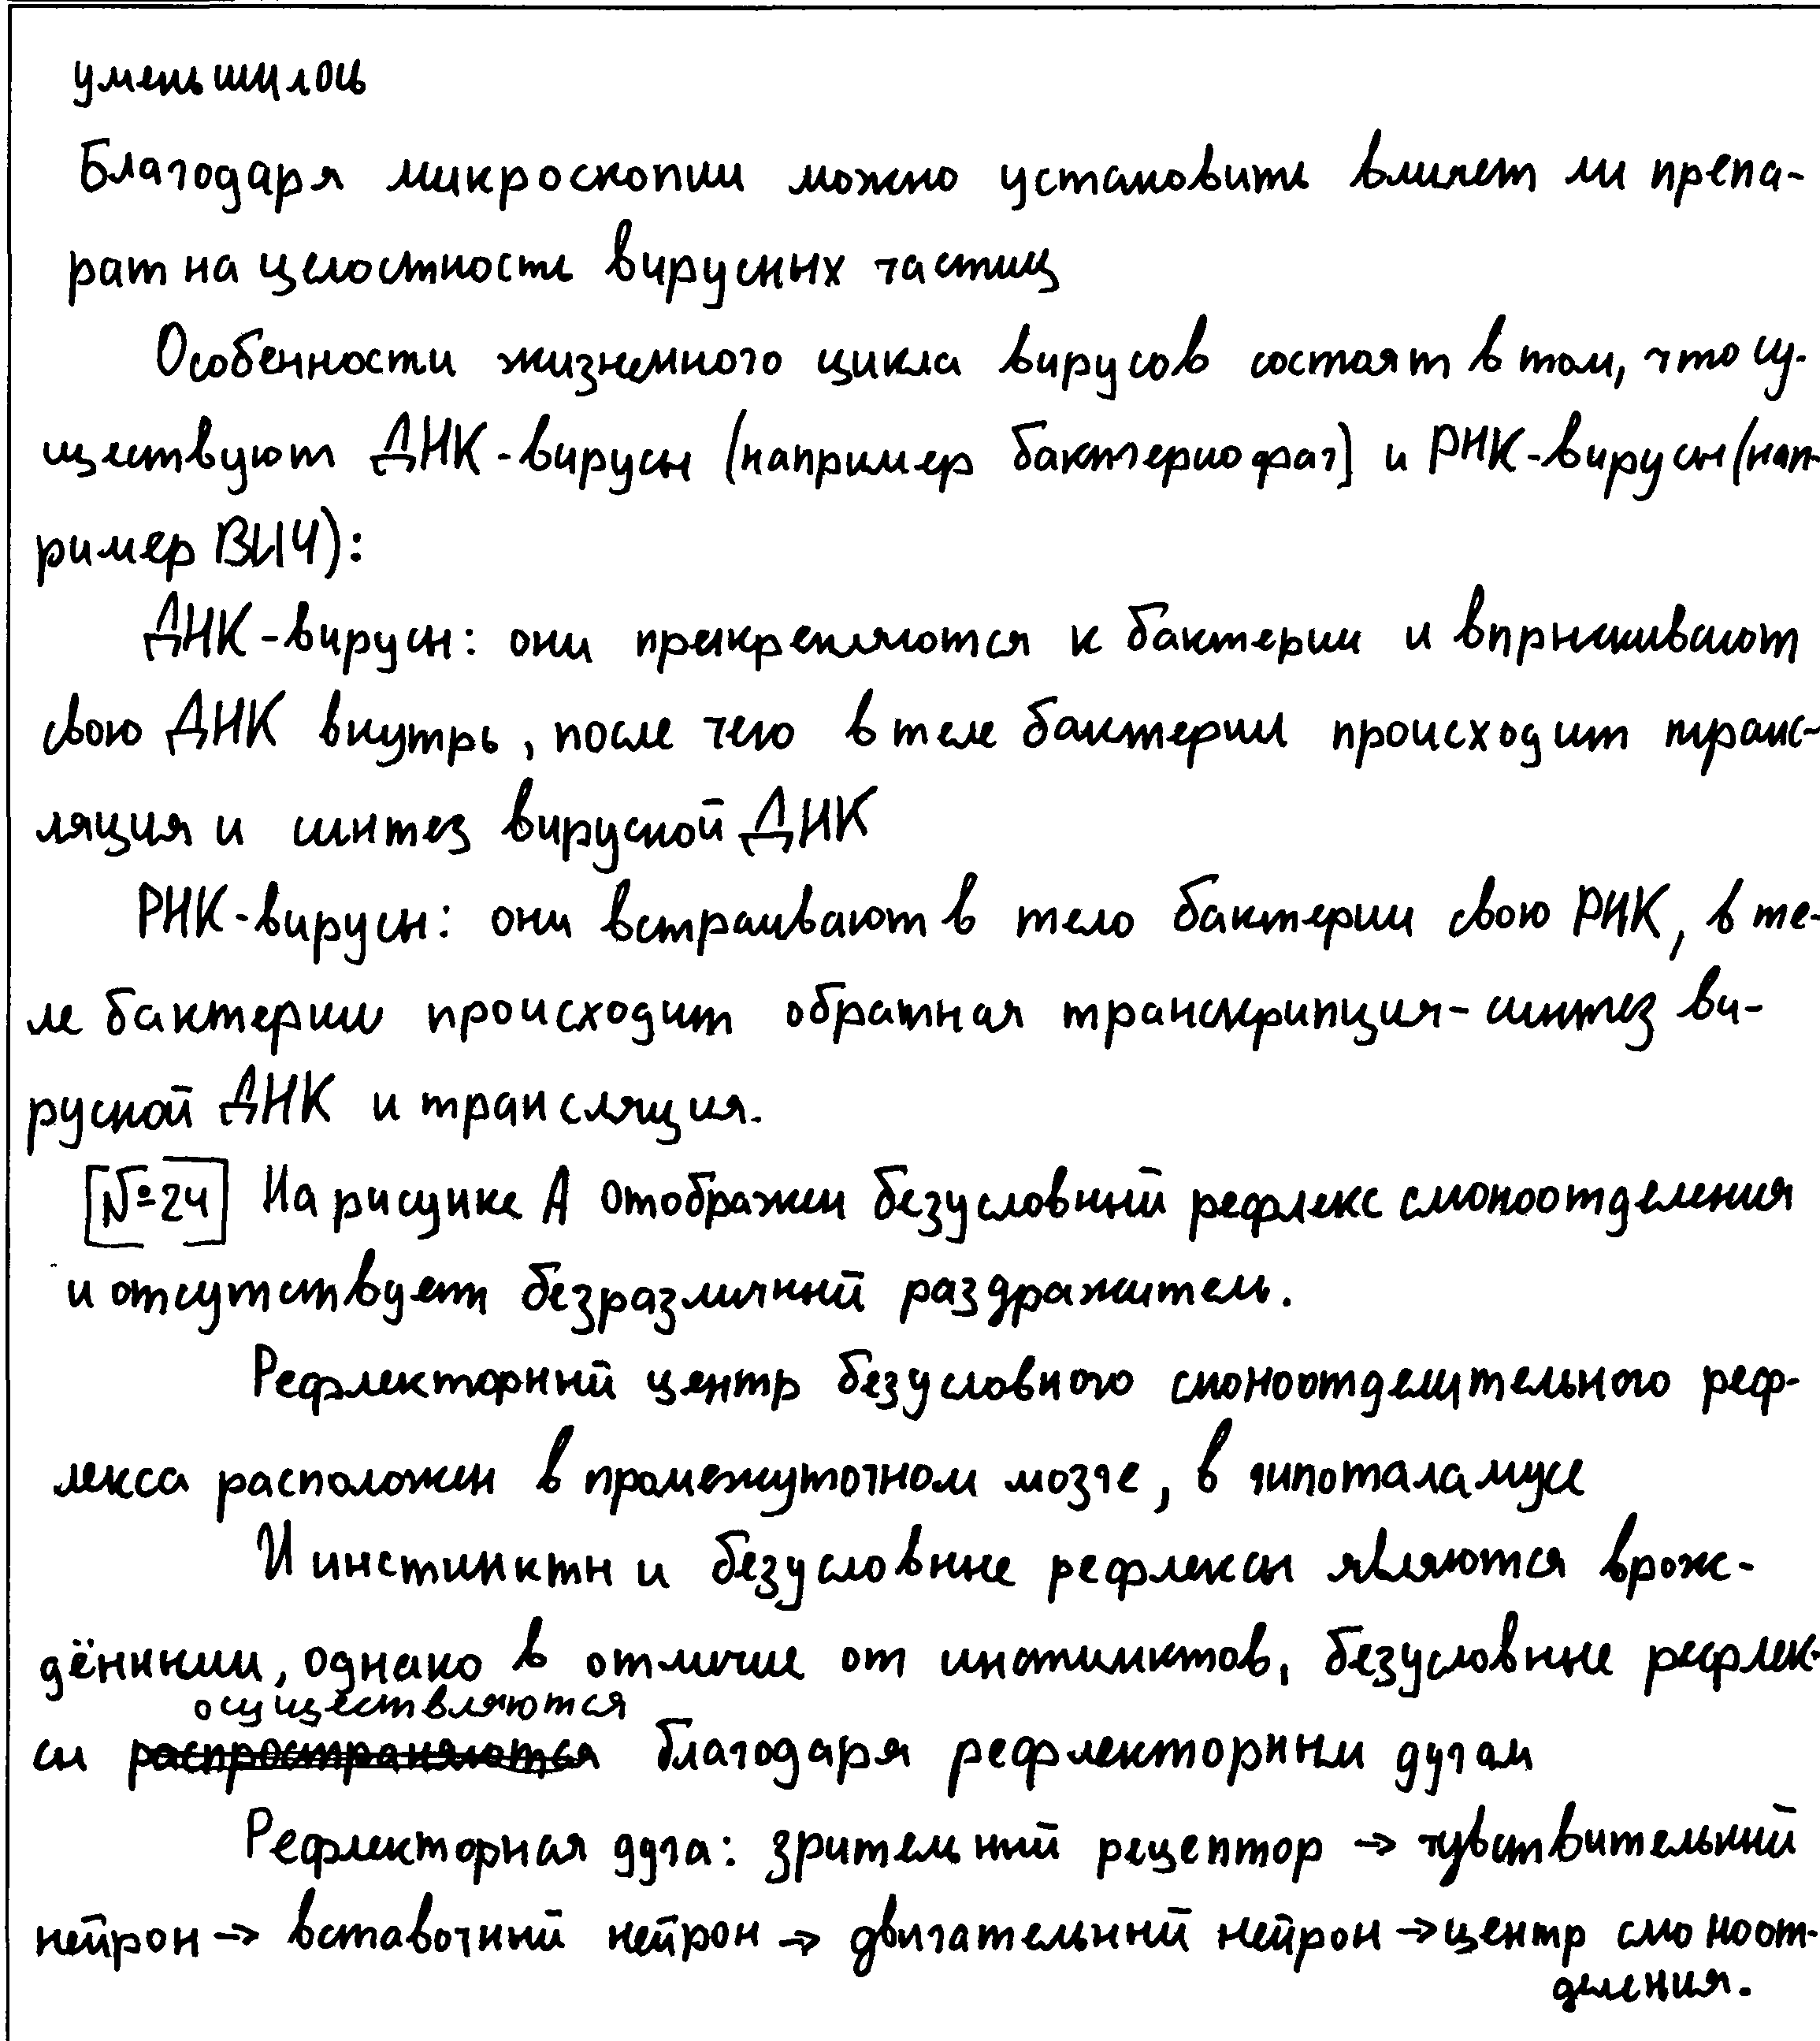 уменьшилось
Благодаря микроскопии можно установить влияет ли препа-
рат на целостность вирусных частиц
Особенности жизненного цикла вирусов состоят в том, что су-
ществуют ДНК-вирусы (например бактериофаг) и РНК-вирусы (нап-
ример ВИЧ):
ДНК-вирусы: они прикрепляются к бактерии и впрыскивают
свою ДНК внутрь, после чего в теле бактерии происходит транс-
ляция и синтез вирусной ДНК
РНК-вирусы: они встраивают в тело бактерии свою РНК, в те-
ле бактерии происходит обратная транскрипция-синтез ви-
русной ДНК и трансляция.
[№24] На рисунке А отображен безусловный рефлекс слюноотделения
и отсутствует безразличный раздражитель.
Рефлекторный центр безусловного слюноотделительного реф-
лекса расположен в промежуточном мозге, в гипоталамусе
И инстинкты и безусловные рефлексы являются врож-
дёнными, однако в отличие от инстинктов, безусловные рефлек-
осуществляются
сы распространяются благодаря рефлекторным дугам
Рефлекторная дуга: зрительный рецептор → чувствительный
нейрон → вставочный нейрон → двигательный нейрон → центр слюноот-
деления.